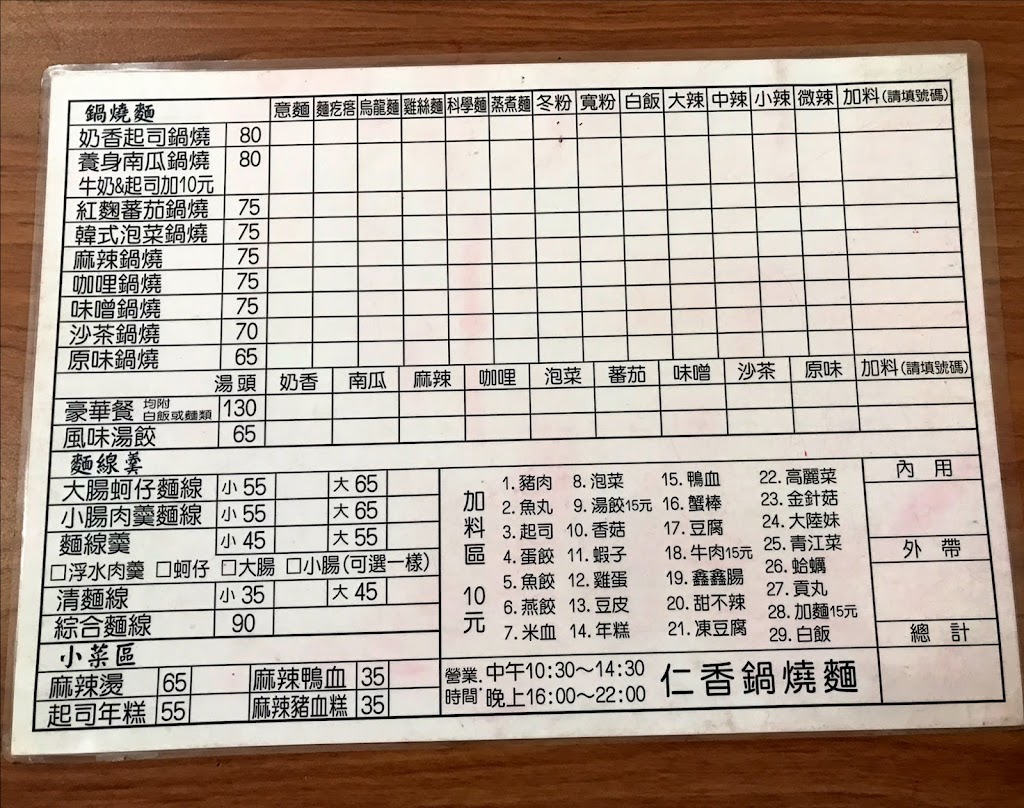 鍋燒麵 意麵 麵疙瘩 烏龍麵 雞絲麵 科學麵 蒸煮麵 冬粉 寬粉 白飯 大辣 中辣 小辣 微辣 加料(請填號碼)
奶香起司鍋燒 80
養身南瓜鍋燒 80
牛奶&起司加10元
紅麴蕃茄鍋燒 75
韓式泡菜鍋燒 75
麻辣鍋燒 75
咖哩鍋燒 75
味噌鍋燒 75
沙茶鍋燒 70
原味鍋燒 65
湯頭 奶香 南瓜 麻辣 咖哩 泡菜 蕃茄 味噌 沙茶 原味 加料(請填號碼)
豪華餐 均附白飯或麵類 130
風味湯餃 65
麵線羹
大腸蚵仔麵線 小 55 大 65
小腸肉羹麵線 小 55 大 65
麵線羹 小 45 大 55
□浮水肉羹 □蚵仔 □大腸 □小腸(可選一樣)
清麵線 小 35 大 45
綜合麵線 90
小菜區
麻辣燙 65 麻辣鴨血 35
起司年糕 55 麻辣豬血糕 35
加料區 10元
1.豬肉 8.泡菜 15.鴨血 22.高麗菜
2.魚丸 9.湯餃15元 16.蟹棒 23.金針菇
3.起司 10.香菇 17.豆腐 24.大陸妹
4.蛋餃 11.蝦子 18.牛肉15元 25.青江菜
5.魚餃 12.雞蛋 19.鑫鑫腸 26.蛤蠣
6.燕餃 13.豆皮 20.甜不辣 27.貢丸
7.米血 14.年糕 21.凍豆腐 28.加麵15元
29.白飯
內用
外帶
總計
營業時間: 中午10:30～14:30
晚上16:00～22:00
仁香鍋燒麵